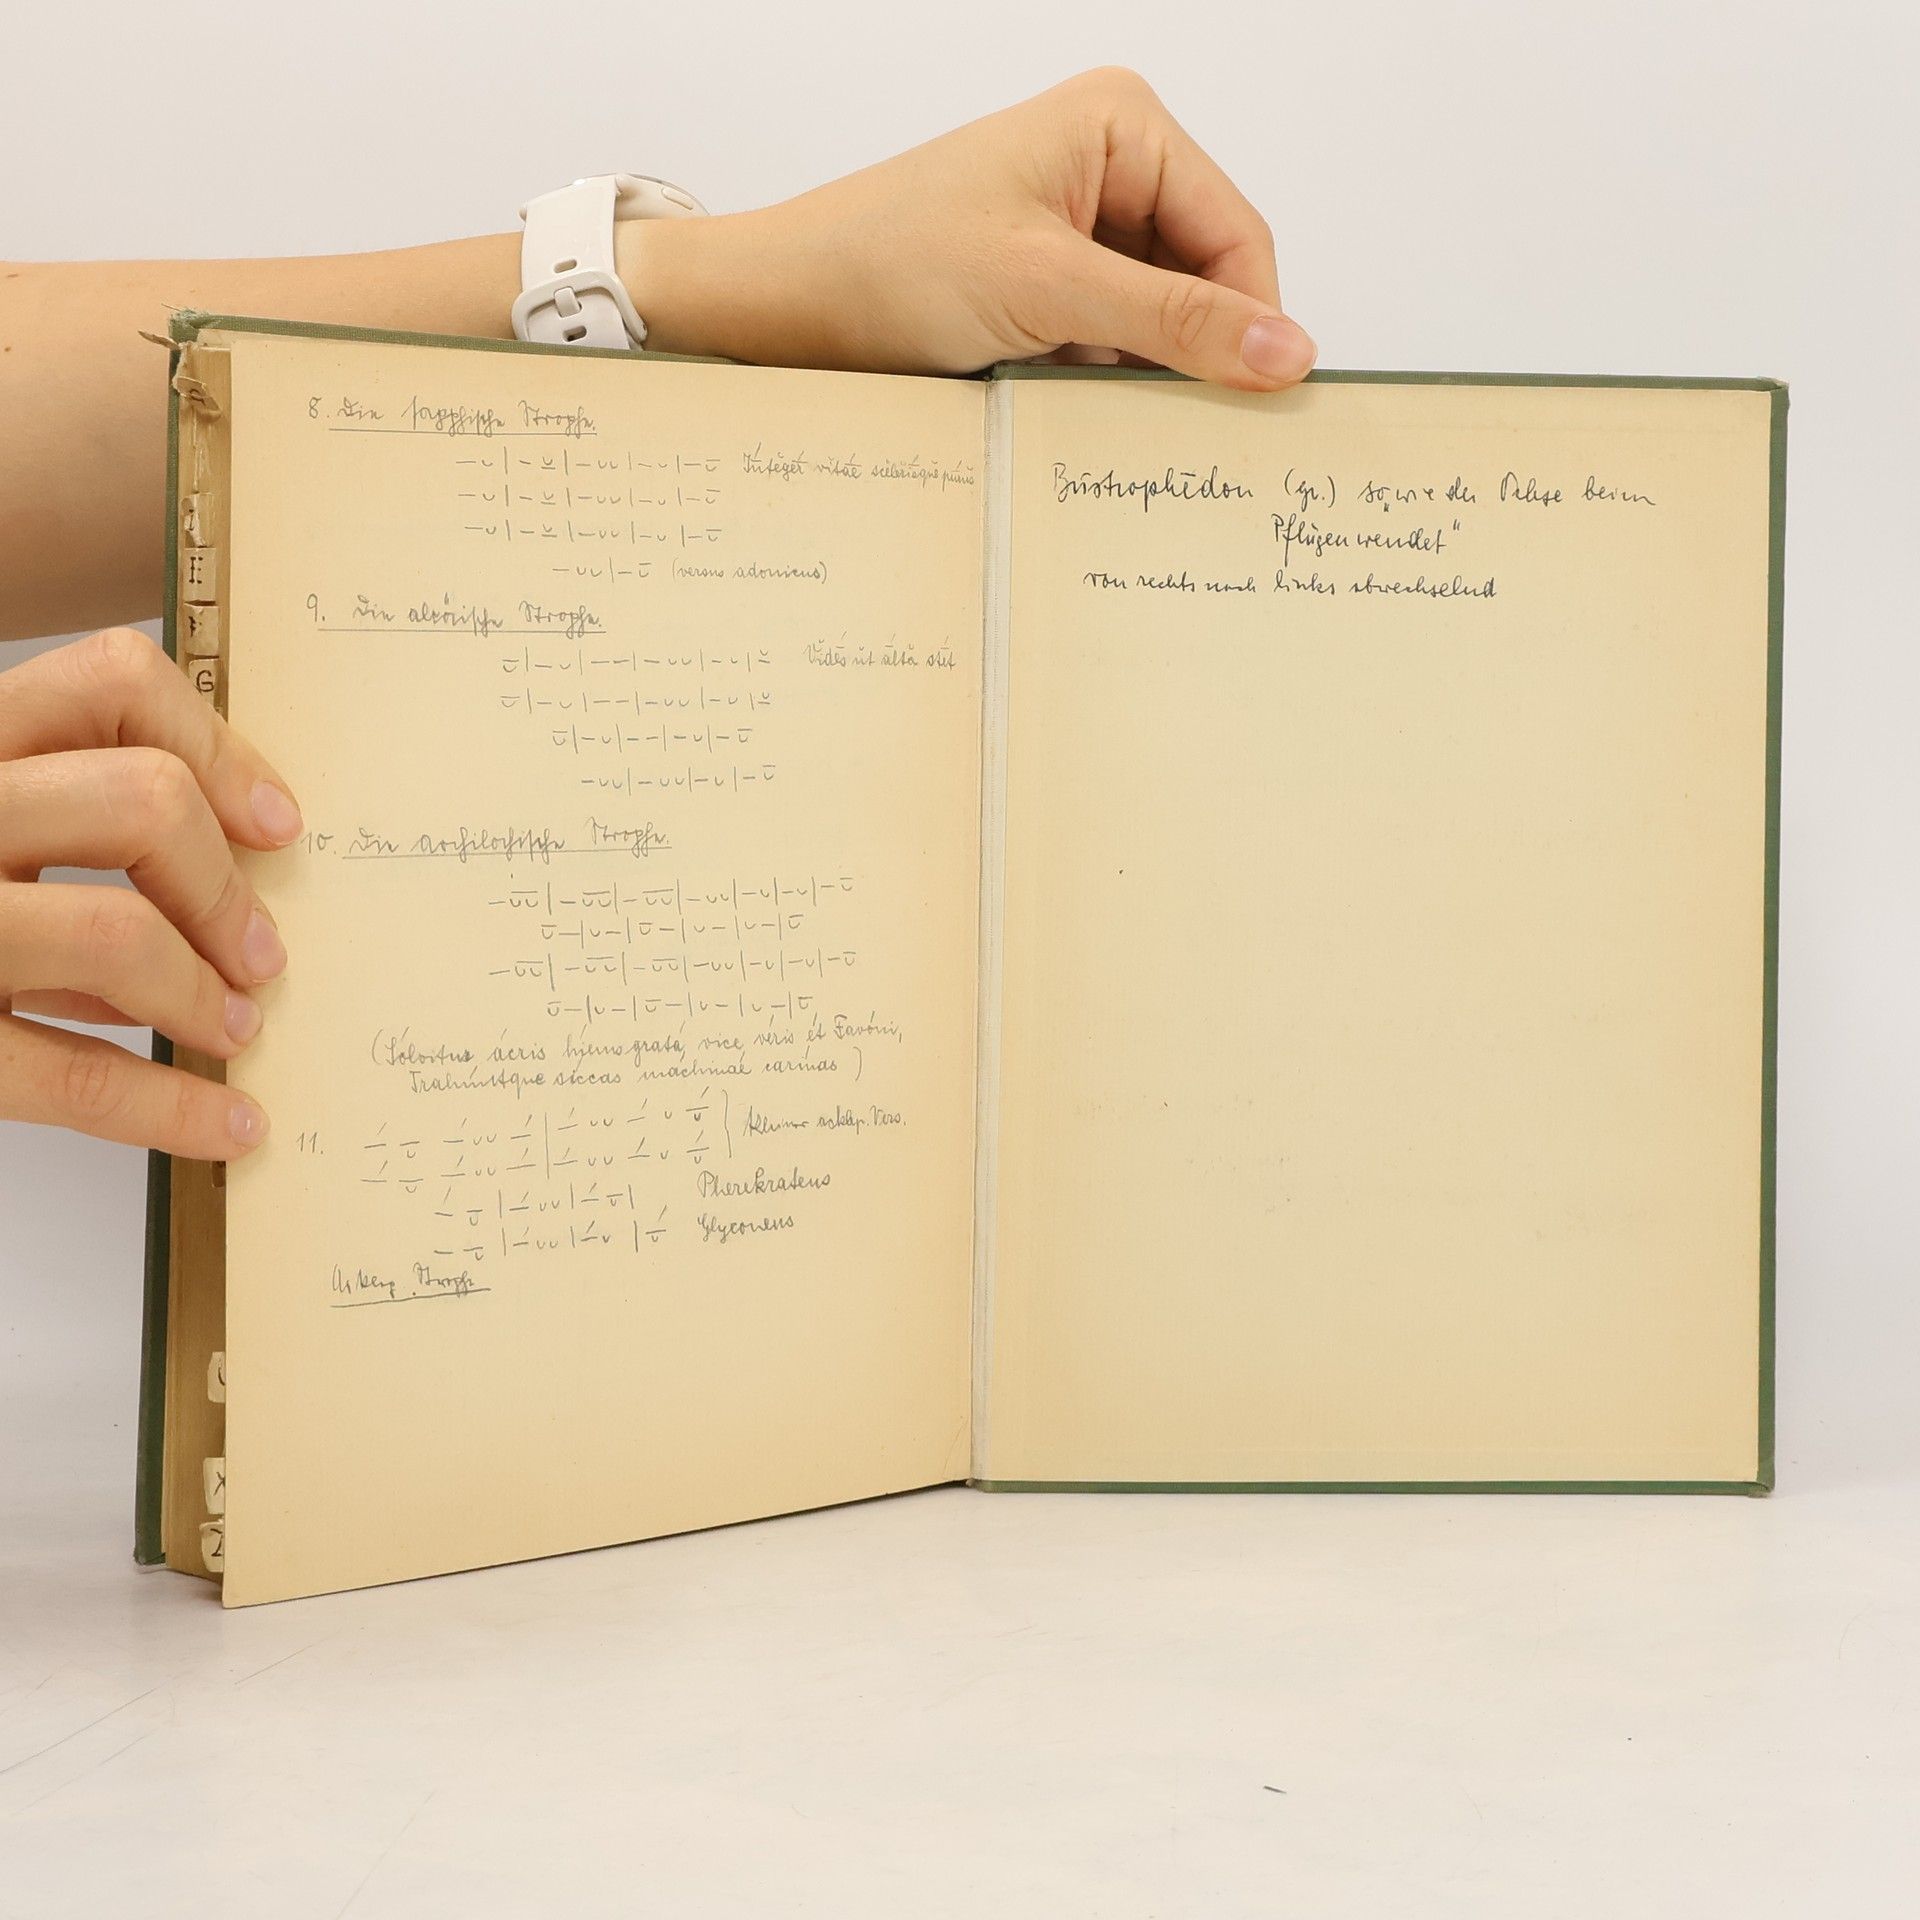 8. Die sapphische Strophe.
– ⏑ | – ⏓ | – ⏑⏑ | – ⏑ | – ⏓ Íntĕgér vĭtáe scĕlĕrísquĕ púrŭs
– ⏑ | – ⏓ | – ⏑⏑ | – ⏑ | – ⏓
– ⏑ | – ⏓ | – ⏑⏑ | – ⏑ | – ⏓
– ⏑⏑ | – ⏓ (versus adonicus)
9. Die alcäische Strophe.
⏓ | – ⏑ | – – | – ⏑⏑ | – ⏑ | ⏓ Vĭdés ŭt áltā stét
⏓ | – ⏑ | – – | – ⏑⏑ | – ⏑ | ⏓
⏓ | – ⏑ | – – | – ⏑ | – ⏓
– ⏑⏑ | – ⏑⏑ | – ⏑ | – ⏓
10. Die archilochische Strophe.
– ⏔ | – ⏔ | – ⏔ | – ⏑⏑ | – ⏑ | – ⏑ | – ⏓
⏓ – | ⏑ – | ⏓ – | ⏑ – | ⏑ – | ⏓
– ⏔ | – ⏔ | – ⏔ | – ⏑⏑ | – ⏑ | – ⏑ | – ⏓
⏓ – | ⏑ – | ⏓ – | ⏑ – | ⏑ – | ⏓
(Sólvitur ácris hiems gratá vice véris ét Favóni,
Trahúntque síccas máchinaé carínas)
11. –́ ⏓ –́ ⏑⏑ –́ | –́ ⏑⏑ –́ ⏑ ⏓́ asklep. Vers.
–́ ⏓ –́ ⏑⏑ –́ | –́ ⏑⏑ –́ ⏑ ⏓́
–́ ⏓ | –́ ⏑⏑ | –́ ⏓ | Pherekrateus
– ⏓ | –́ ⏑⏑ | –́ ⏑ | ⏓́ Glyconeus
Asklep. Strophe
G
E
F
G
X
Z
Bustrophēdon (gr.) so „wie der Ochse beim
Pflügen wendet"
von rechts nach links abwechselnd